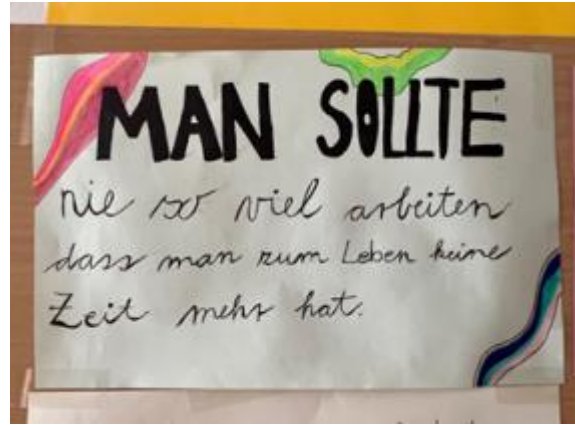 MAN SOLLTE
nie so viel arbeiten
dass man zum Leben keine
Zeit mehr hat.